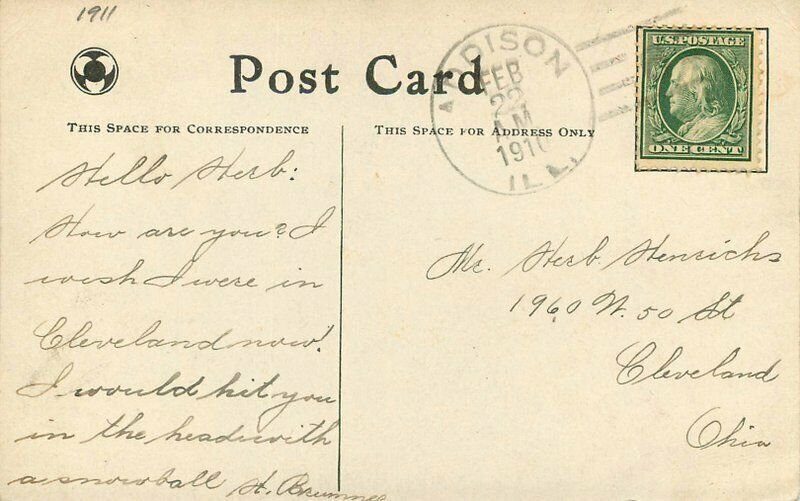 1911
Post Card
ADDISON
FEB
22
AM
1910
ILL.
U.S. POSTAGE
ONE CENT
THIS SPACE FOR CORRESPONDENCE
THIS SPACE FOR ADDRESS ONLY
Hello Herb:
How are you? I
wish I were in
Cleveland now!
I would hit you
in the head with
a snowball H.
Mr. Herb. Henrichs
1960 W. 50 St
Cleveland
Ohio